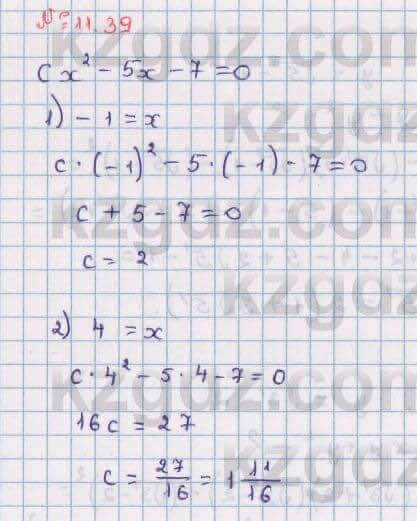 № 11.39
cx² - 5x - 7 = 0
1) - 1 = x
c · (-1)² - 5 · (-1) - 7 = 0
c + 5 - 7 = 0
c = 2
2) 4 = x
c · 4² - 5 · 4 - 7 = 0
16c = 27
c = 27/16 = 1 11/16
kzgdz.com